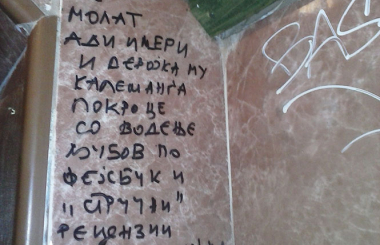 МОЛАТ
АДИ ИМЕРИ
И ДЕРОЖКА МУ
КАЛЕШАНГА
ПОКРОЦЕ
СО ВОДЕЊЕ
ЉУБОВ ПО
ФЕЈСБУК И
„СТРУЧНИ"
РЕЦЕНЗИИ
BAS